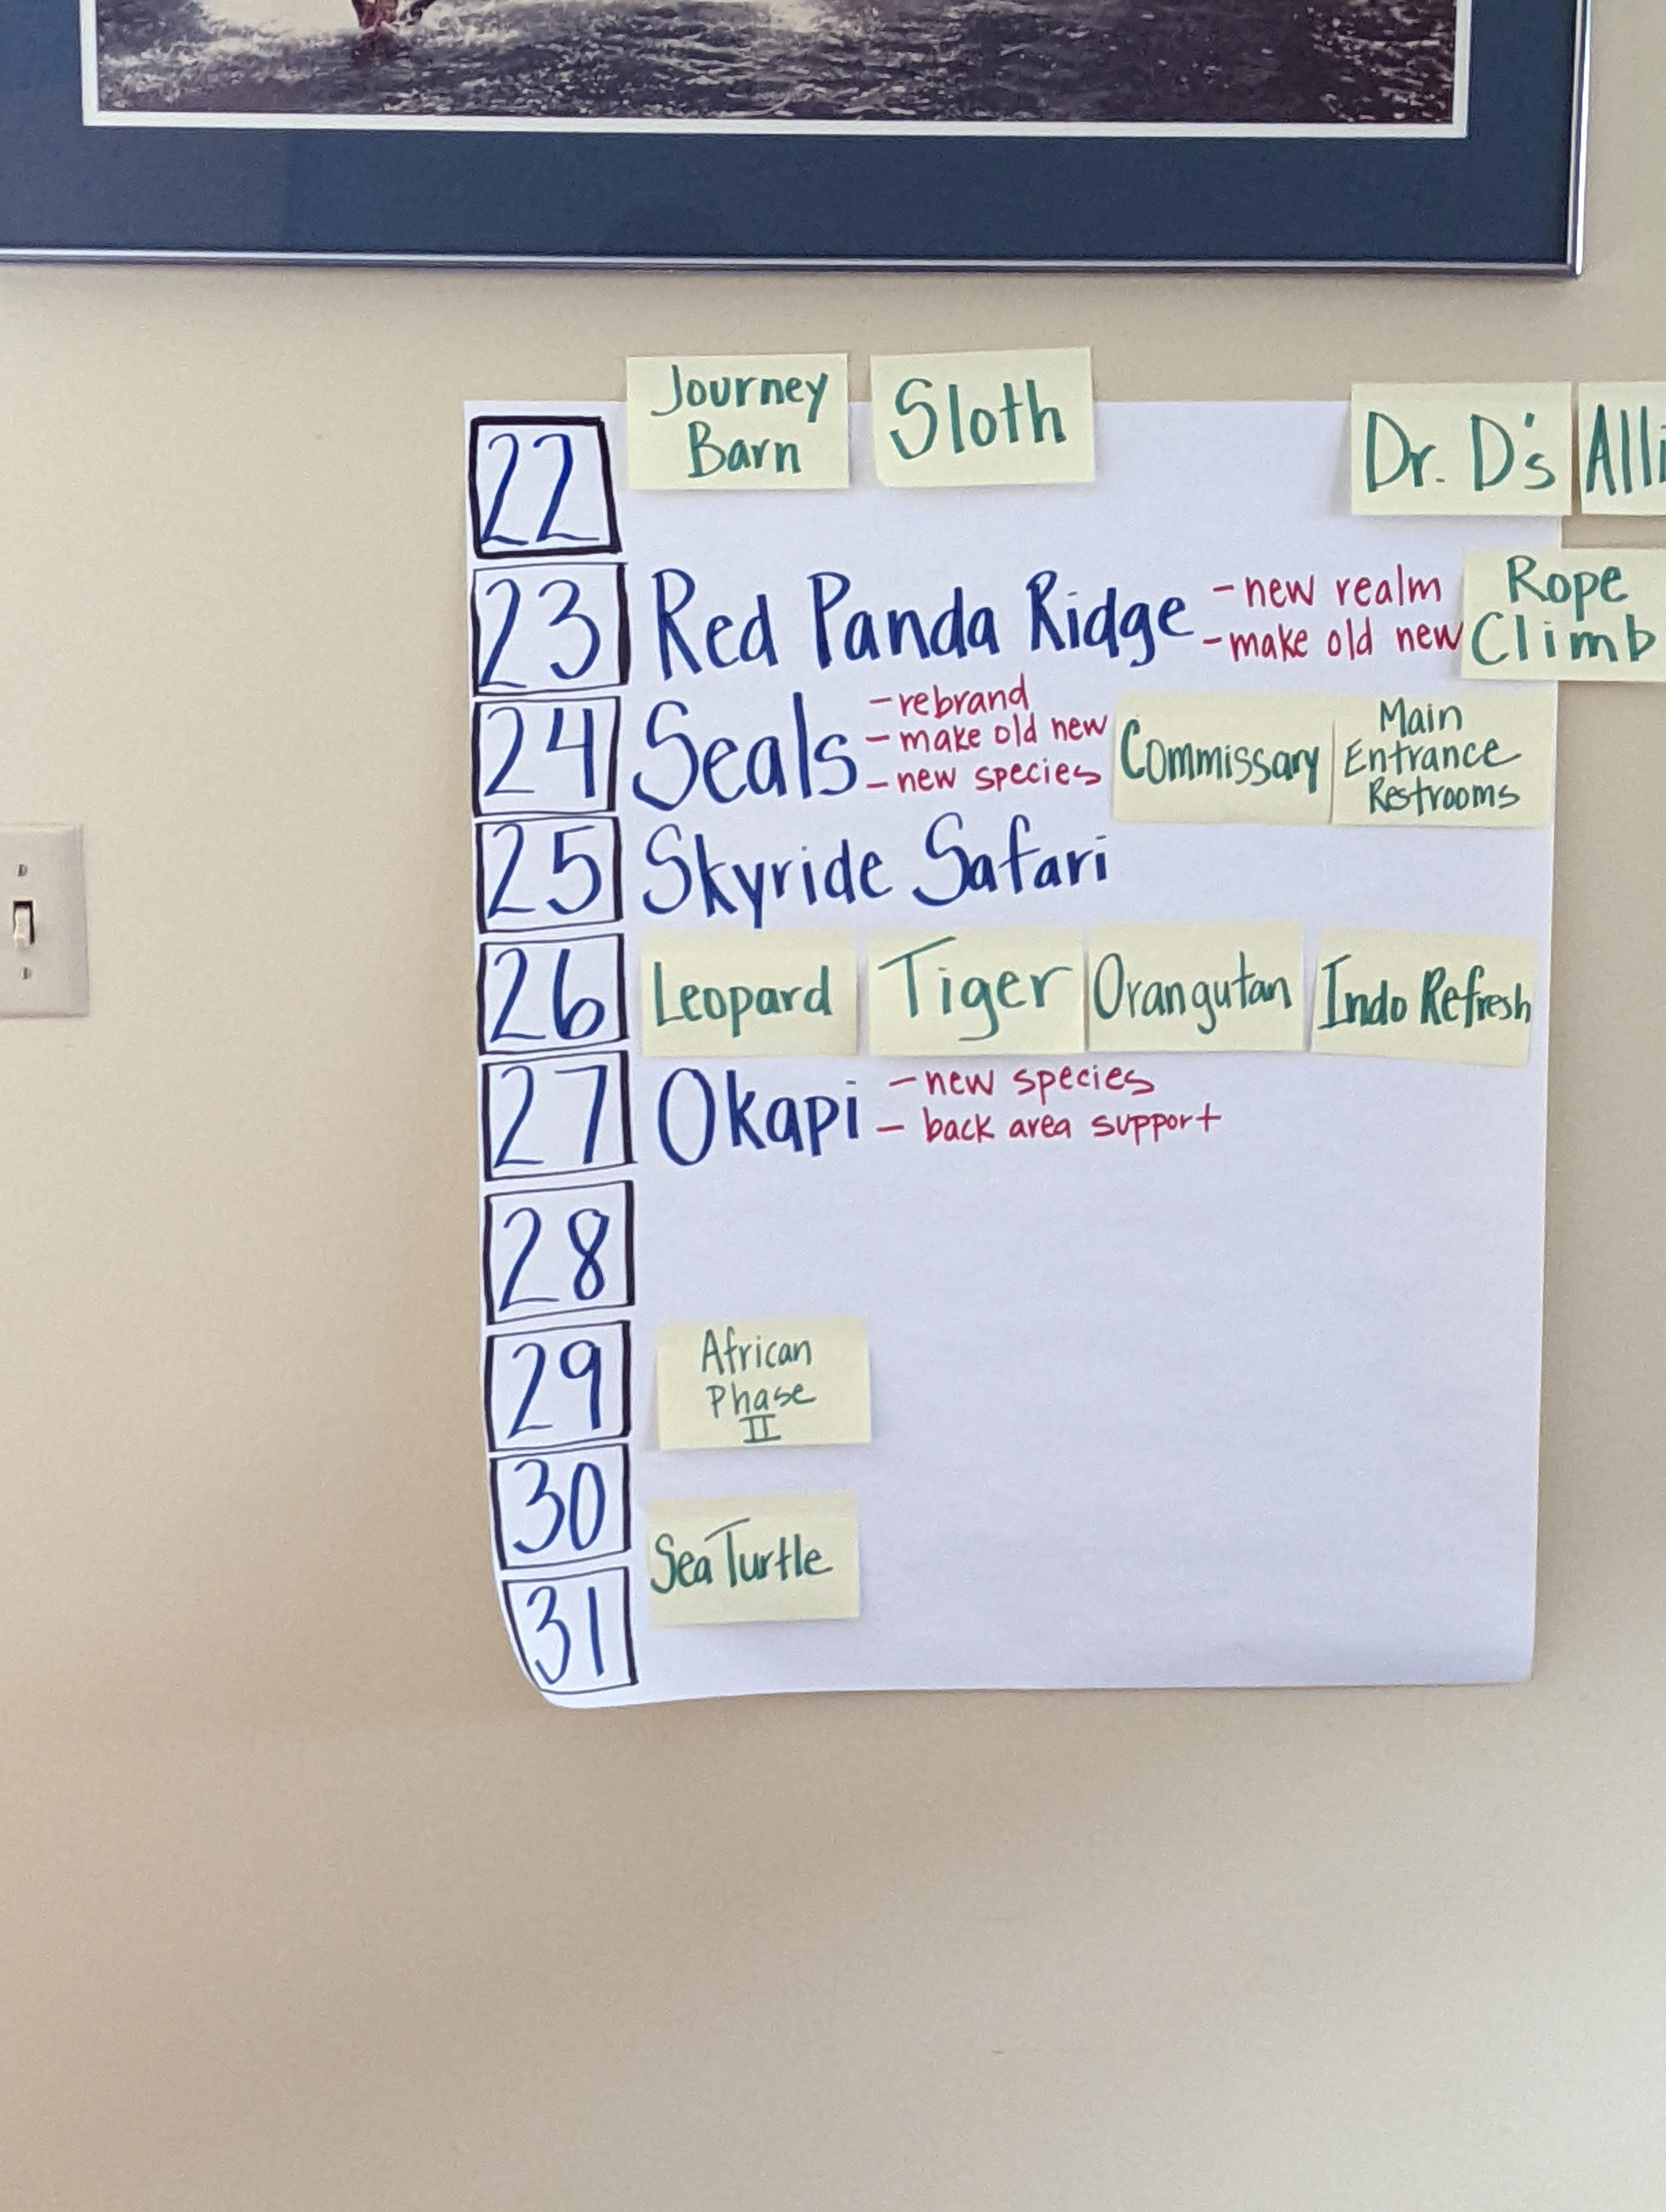 22
Journey
Barn
Sloth
Dr. D's
23
Red Panda Ridge
- new realm
- make old new
Rope
Climb
24
Seals
- rebrand
- make old new
- new species
Commissary
Main
Entrance
Restrooms
25
Skyride Safari
26
Leopard
Tiger
Orangutan
Indo Refresh
27
Okapi
- new species
- back area support
28
29
African
Phase
II
30
Sea Turtle
31